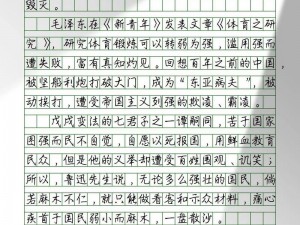 毁灭。
毛泽东在《新青年》发表文章《体育之研
究》，研究体育锻炼可以转弱为强，滥用强而
遭失败，富有真知灼见。回想百年之前的中国，
被坚船利炮打破大门，成为“东亚病夫”，被
动挨打，遭受帝国主义列强的欺凌、霸凌。
戊戌变法的七君子之一谭嗣同，苦于国家
图强而民不自强，自愿以死报国，用鲜血教育
民众，但是他的义举却遭受百姓围观、讥笑；
所以，鲁迅先生说，无论多么强壮的国民，倘
若麻木不仁，就只能做看客和示众材料，痛心
疾首于国民弱小而麻木，一盘散沙。